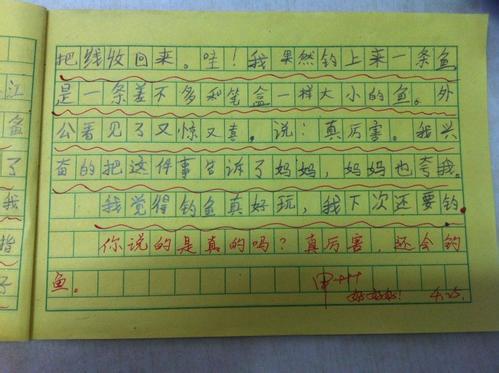 把线收回来。哇！我果然钓上来一条鱼
江 是一条差不多和笔盒一样大小的鱼。外
鱼 公看见了又惊又喜。说：真厉害。我兴
了 奋的把这件事告诉了妈妈，妈妈也夸我。
我 我觉得钓鱼真好玩，我下次还要钓。
指 你说的是真的吗？真厉害，还会钓
子 鱼。 甲+++
好好好！